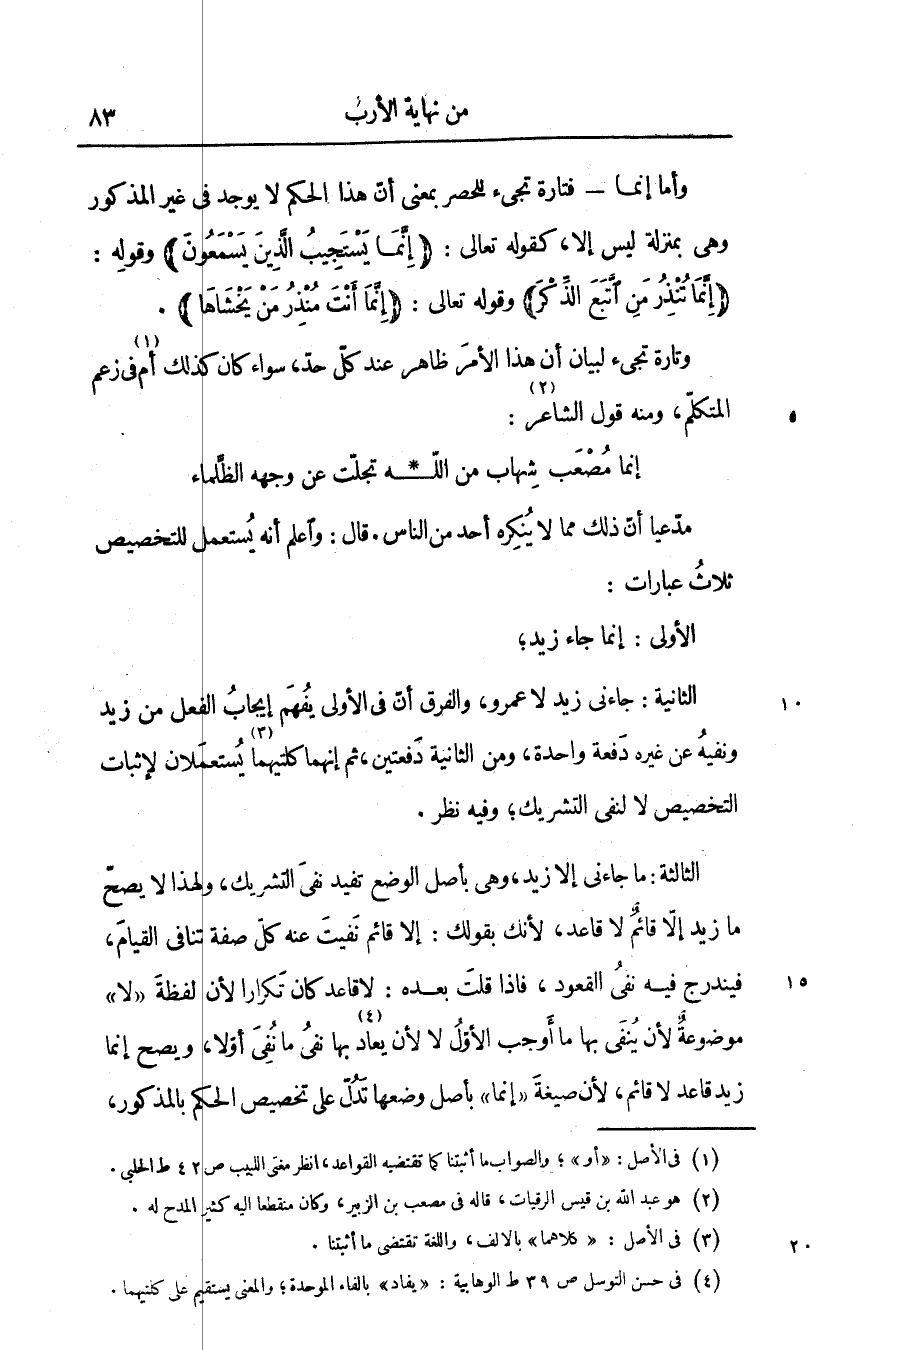 من نهاية الأرب ٨٣
وأما إنما – فتارة تجيء للحصر بمعنى أنّ هذا الحكم لا يوجد فى غير المذكور
وهى بمنزلة ليس إلا، كقوله تعالى : ﴿إِنَّمَا يَسْتَجِيبُ الَّذِينَ يَسْمَعُونَ﴾ وقولِه :
﴿إِنَّمَا تُنْذِرُ مَنِ ٱتَّبَعَ الذِّكْرَ﴾ وقوله تعالى : ﴿إِنَّمَا أَنْتَ مُنْذِرُ مَنْ يَخْشَاهَا﴾ .
وتارة تجىء لبيان أن هذا الأمرَ ظاهر عند كلّ حدّ، سواء كان كذلك أم (١) فى زعم
٥ المتكلّم، ومنه قول الشاعر (٢) :
إنما مُصْعَب شِهاب من اللّـ * ـه تجلّت عن وجهه الظَّلماء
مدّعيا أنّ ذلك مما لا يُنكِره أحد من الناس . قال : وٱعلم أنه يُستعمل للتخصيص
ثلاثُ عبارات :
الأولى : إنما جاء زيد؛
١٠ الثانية : جاءنى زيد لا عمرو، والفرق أنّ فى الأولى يُفهَم إيجابُ الفعل من زيد
ونفيهُ عن غيره دَفعة واحدة، ومن الثانية دَفعتين، ثم إنهما كلتيهما (٣) يُستعمَلان لإثبات
التخصيص لا لنفى التشريك؛ وفيه نظر .
الثالثة : ما جاءنى إلا زيد، وهى بأصل الوضع تفيد نفىَ التشريك، ولهذا لا يصحّ
ما زيد إلّا قائمٌ لا قاعد، لأنك بقولك : إلا قائم نَفيتَ عنه كلّ صفة تنافى القيامَ،
١٥ فيندرج فيه نفىُ القعود ، فاذا قلتَ بعده : لا قاعد كان تَكرارا لأن لفظةَ «لا»
موضوعةٌ لأن يُنفَى بها ما أَوجب الأوّلُ لا لأن يعاد (٤) بها نفىُ ما نُفِىَ أوّلا، ويصح إنما
زيد قاعد لا قائم، لأن صيغةَ «إنما» بأصل وضعها تَدُلّ على تخصيص الحكم بالمذكور،
(١) فى الأصل : «أو» ؛ والصواب ما أثبتنا كما تقتضيه القواعد، انظر مغنى اللبيب ص ٤٢ ط الحلبي .
(٢) هو عبد الله بن قيس الرقيات ، قاله فى مصعب بن الزبير، وكان منقطعا اليه كثير المدح له .
٢٠ (٣) فى الأصل : « كلاهما» بالالف، واللغة تقتضى ما أثبتنا .
(٤) فى حسن التوسل ص ٣٩ ط الوهابية : «يفاد» بالفاء الموحدة؛ والمعنى يستقيم على كلتيهما .